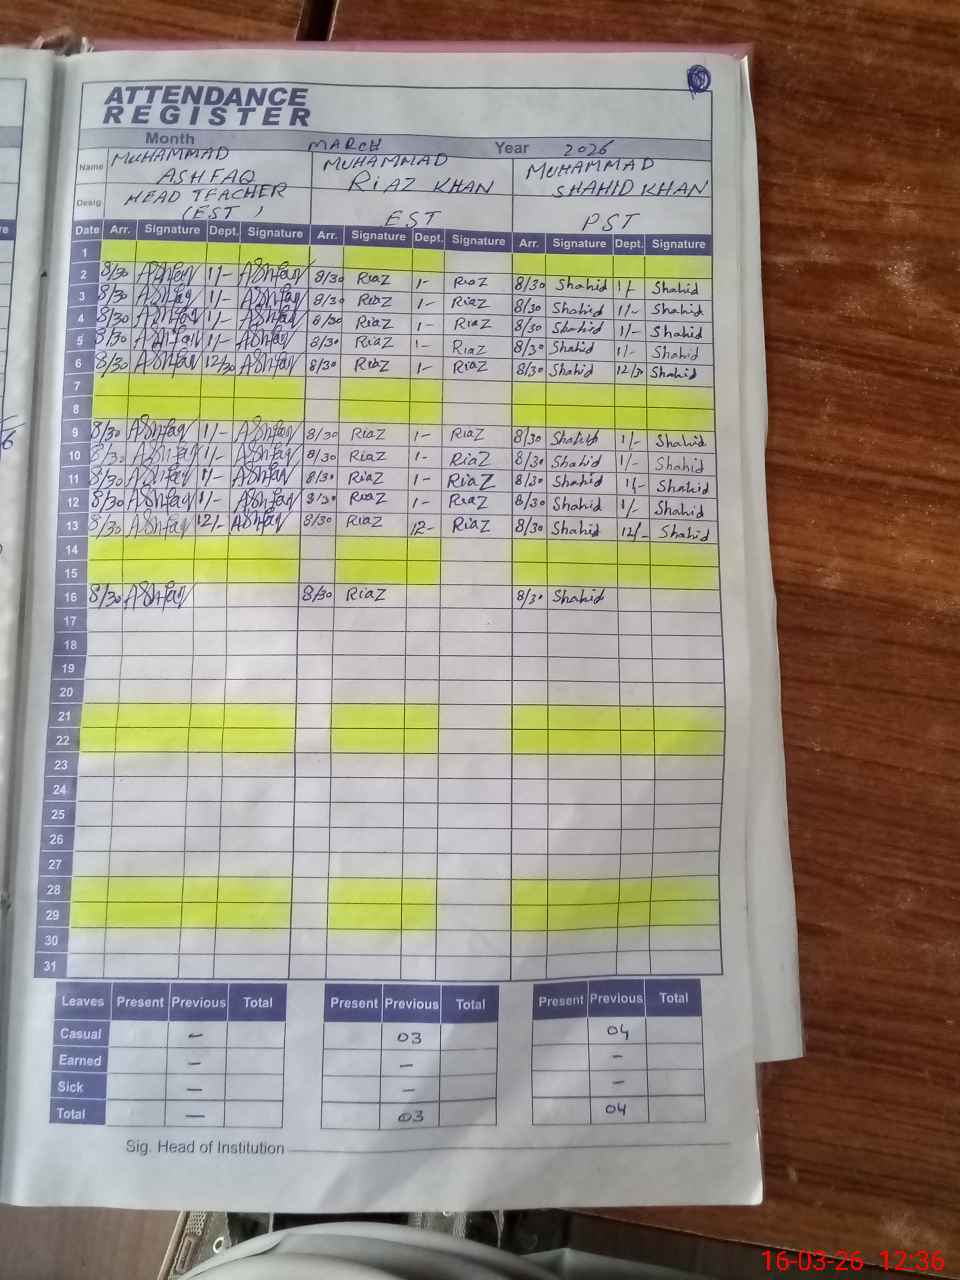 ATTENDANCE
REGISTER
Month MARCH Year 2026
Name MUHAMMAD ASHFAQ MUHAMMAD RIAZ KHAN MUHAMMAD SHAHID KHAN
Desig. HEAD TEACHER (EST) EST PST
Date Arr. Signature Dept. Signature Arr. Signature Dept. Signature Arr. Signature Dept. Signature
1
2 8/30 Ashfaq 1/- Ashfaq 8/30 RiaZ 1- RiaZ 8/30 Shahid 1/- Shahid
3 8/30 Ashfaq 1/- Ashfaq 8/30 RiaZ 1- RiaZ 8/30 Shahid 1/- Shahid
4 8/30 Ashfaq 1/- Ashfaq 8/30 RiaZ 1- RiaZ 8/30 Shahid 1/- Shahid
5 8/30 Ashfaq 1/- Ashfaq 8/30 RiaZ 1- RiaZ 8/30 Shahid 1/- Shahid
6 8/30 Ashfaq 12/30 Ashfaq 8/30 RiaZ 1- RiaZ 8/30 Shahid 12/3 Shahid
7
8
9 8/30 Ashfaq 1/- Ashfaq 8/30 RiaZ 1- RiaZ 8/30 Shahid 1/- Shahid
10 8/30 Ashfaq 1/- Ashfaq 8/30 RiaZ 1- RiaZ 8/30 Shahid 1/- Shahid
11 8/30 Ashfaq 1/- Ashfaq 8/30 RiaZ 1- RiaZ 8/30 Shahid 1/- Shahid
12 8/30 Ashfaq 1/- Ashfaq 8/30 RiaZ 1- RiaZ 8/30 Shahid 1/- Shahid
13 8/30 Ashfaq 12/- Ashfaq 8/30 RiaZ 12- RiaZ 8/30 Shahid 12/- Shahid
14
15
16 8/30 Ashfaq 8/30 RiaZ 8/30 Shahid
17
18
19
20
21
22
23
24
25
26
27
28
29
30
31
Leaves Present Previous Total Present Previous Total Present Previous Total
Casual - 03 04
Earned - - -
Sick - - -
Total - 03 04
Sig. Head of Institution
16-03-26 12:36